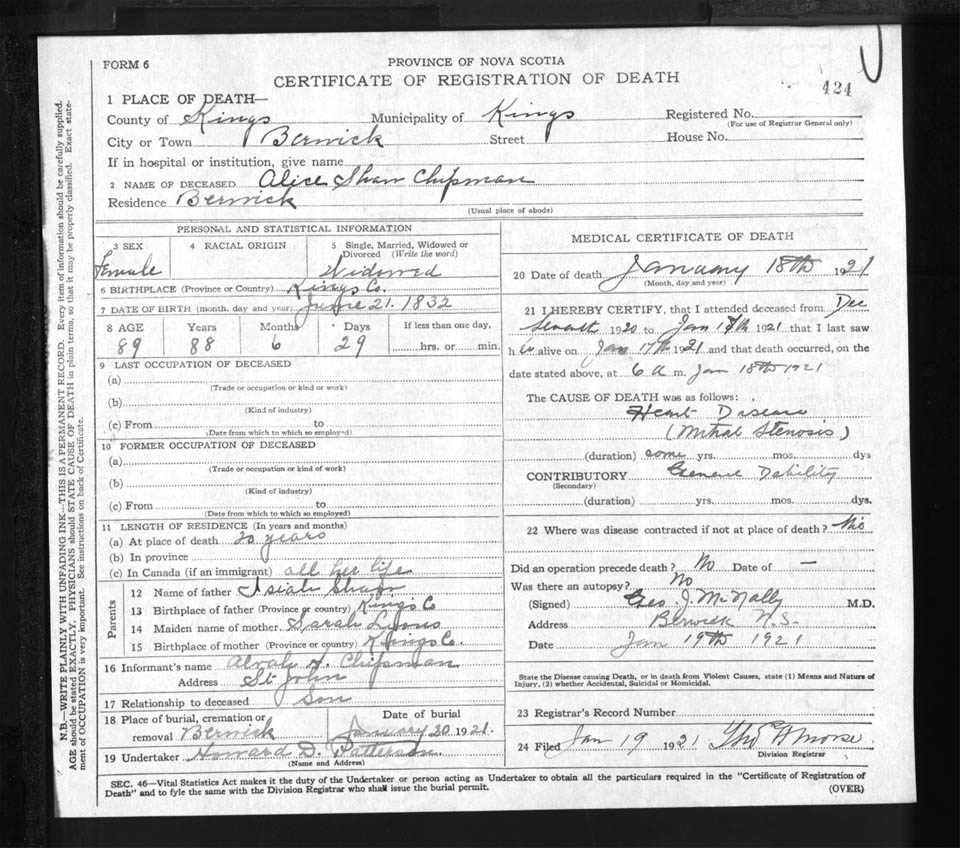 FORM 6
PROVINCE OF NOVA SCOTIA
CERTIFICATE OF REGISTRATION OF DEATH
424
1 PLACE OF DEATH—
County of Kings Municipality of Kings Registered No.
(For use of Registrar General only)
City or Town Berwick Street House No.
If in hospital or institution, give name
2 NAME OF DECEASED Alice Shaw Chipman
Residence Berwick
(Usual place of abode)
N.B.—WRITE PLAINLY WITH UNFADING INK—THIS IS A PERMANENT RECORD. Every item of information should be carefully supplied.
AGE should be stated EXACTLY. PHYSICIANS should STATE CAUSE OF DEATH in plain terms, so that it may be properly classified. Exact state-
ment of OCCUPATION is very important. See instructions on back of Certificate.
PERSONAL AND STATISTICAL INFORMATION
3 SEX 4 RACIAL ORIGIN 5 Single, Married, Widowed or
Divorced (Write the word)
Female Widowed
6 BIRTHPLACE (Province or Country) Kings Co.
7 DATE OF BIRTH (month, day and year) June 21. 1832
8 AGE Years Months Days If less than one day,
89 88 6 29 hrs. or min.
9 LAST OCCUPATION OF DECEASED
(a)
(Trade or occupation or kind or work)
(b)
(Kind of industry)
(c) From to
(Date from which to which so employed)
10 FORMER OCCUPATION OF DECEASED
(a)
(Trade or occupation or kind of work)
(b)
(Kind of industry)
(c) From to
(Date from which to which so employed)
11 LENGTH OF RESIDENCE (In years and months)
(a) At place of death 20 years
(b) In province
(c) In Canada (if an immigrant) all her life
Parents
12 Name of father Isiah Shaw
13 Birthplace of father (Province or country) Kings Co
14 Maiden name of mother Sarah Lyons
15 Birthplace of mother (Province or country) Kings Co.
16 Informant's name Alvah H. Chipman
Address St John
17 Relationship to deceased Son
18 Place of burial, cremation or Date of burial
removal Berwick January 20 1921.
19 Undertaker Howard D. Patterson
(Name and Address)
MEDICAL CERTIFICATE OF DEATH
20 Date of death January 18th 1921
(Month, day and year)
21 I HEREBY CERTIFY, that I attended deceased from Dec
1920 to Jan 1921 that I last saw
h alive on Jan 17th 1921 and that death occurred, on the
date stated above, at 6 a m. Jan 18th 1921
The CAUSE OF DEATH was as follows:
Heart Disease
(Mitral Stenosis)
(duration) some yrs. mos. dys
CONTRIBUTORY General Debility
(Secondary)
(duration) yrs. mos. dys.
22 Where was disease contracted if not at place of death?
Did an operation precede death? No Date of —
Was there an autopsy? No
(Signed) Geo. J. McNally M.D.
Address Berwick N.S.
Date Jan 19th 1921
State the Disease causing Death, or in death from Violent Causes, state (1) Means and Nature of
Injury, (2) whether Accidental, Suicidal or Homicidal.
23 Registrar's Record Number
24 Filed Jan 19 1921 Morse
Division Registrar
SEC. 46—Vital Statistics Act makes it the duty of the Undertaker or person acting as Undertaker to obtain all the particulars required in the "Certificate of Registration of
Death" and to fyle the same with the Division Registrar who shall issue the burial permit.
(OVER)